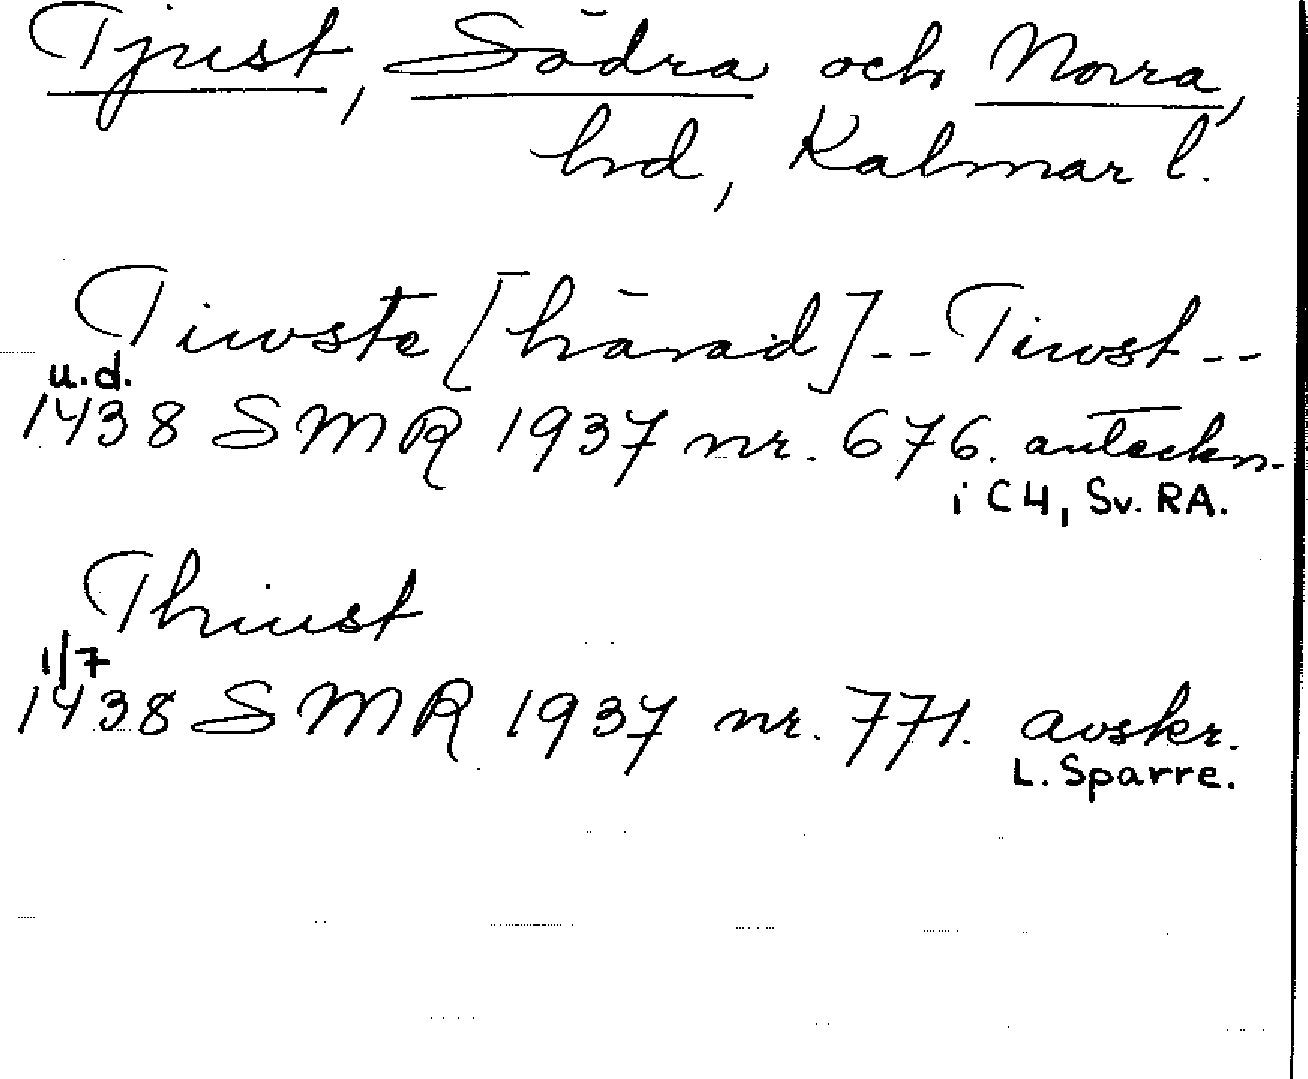 Tjust, Södra och Norra,
hd, Kalmar l.
Tiwste [härad] -- Tiwst --
u.d.
1438 SMR 1937 nr. 676. anteckn.
i C4, Sv. RA.
Thiust
1/7
1438 SMR 1937 nr. 771. avskr.
L. Sparre.